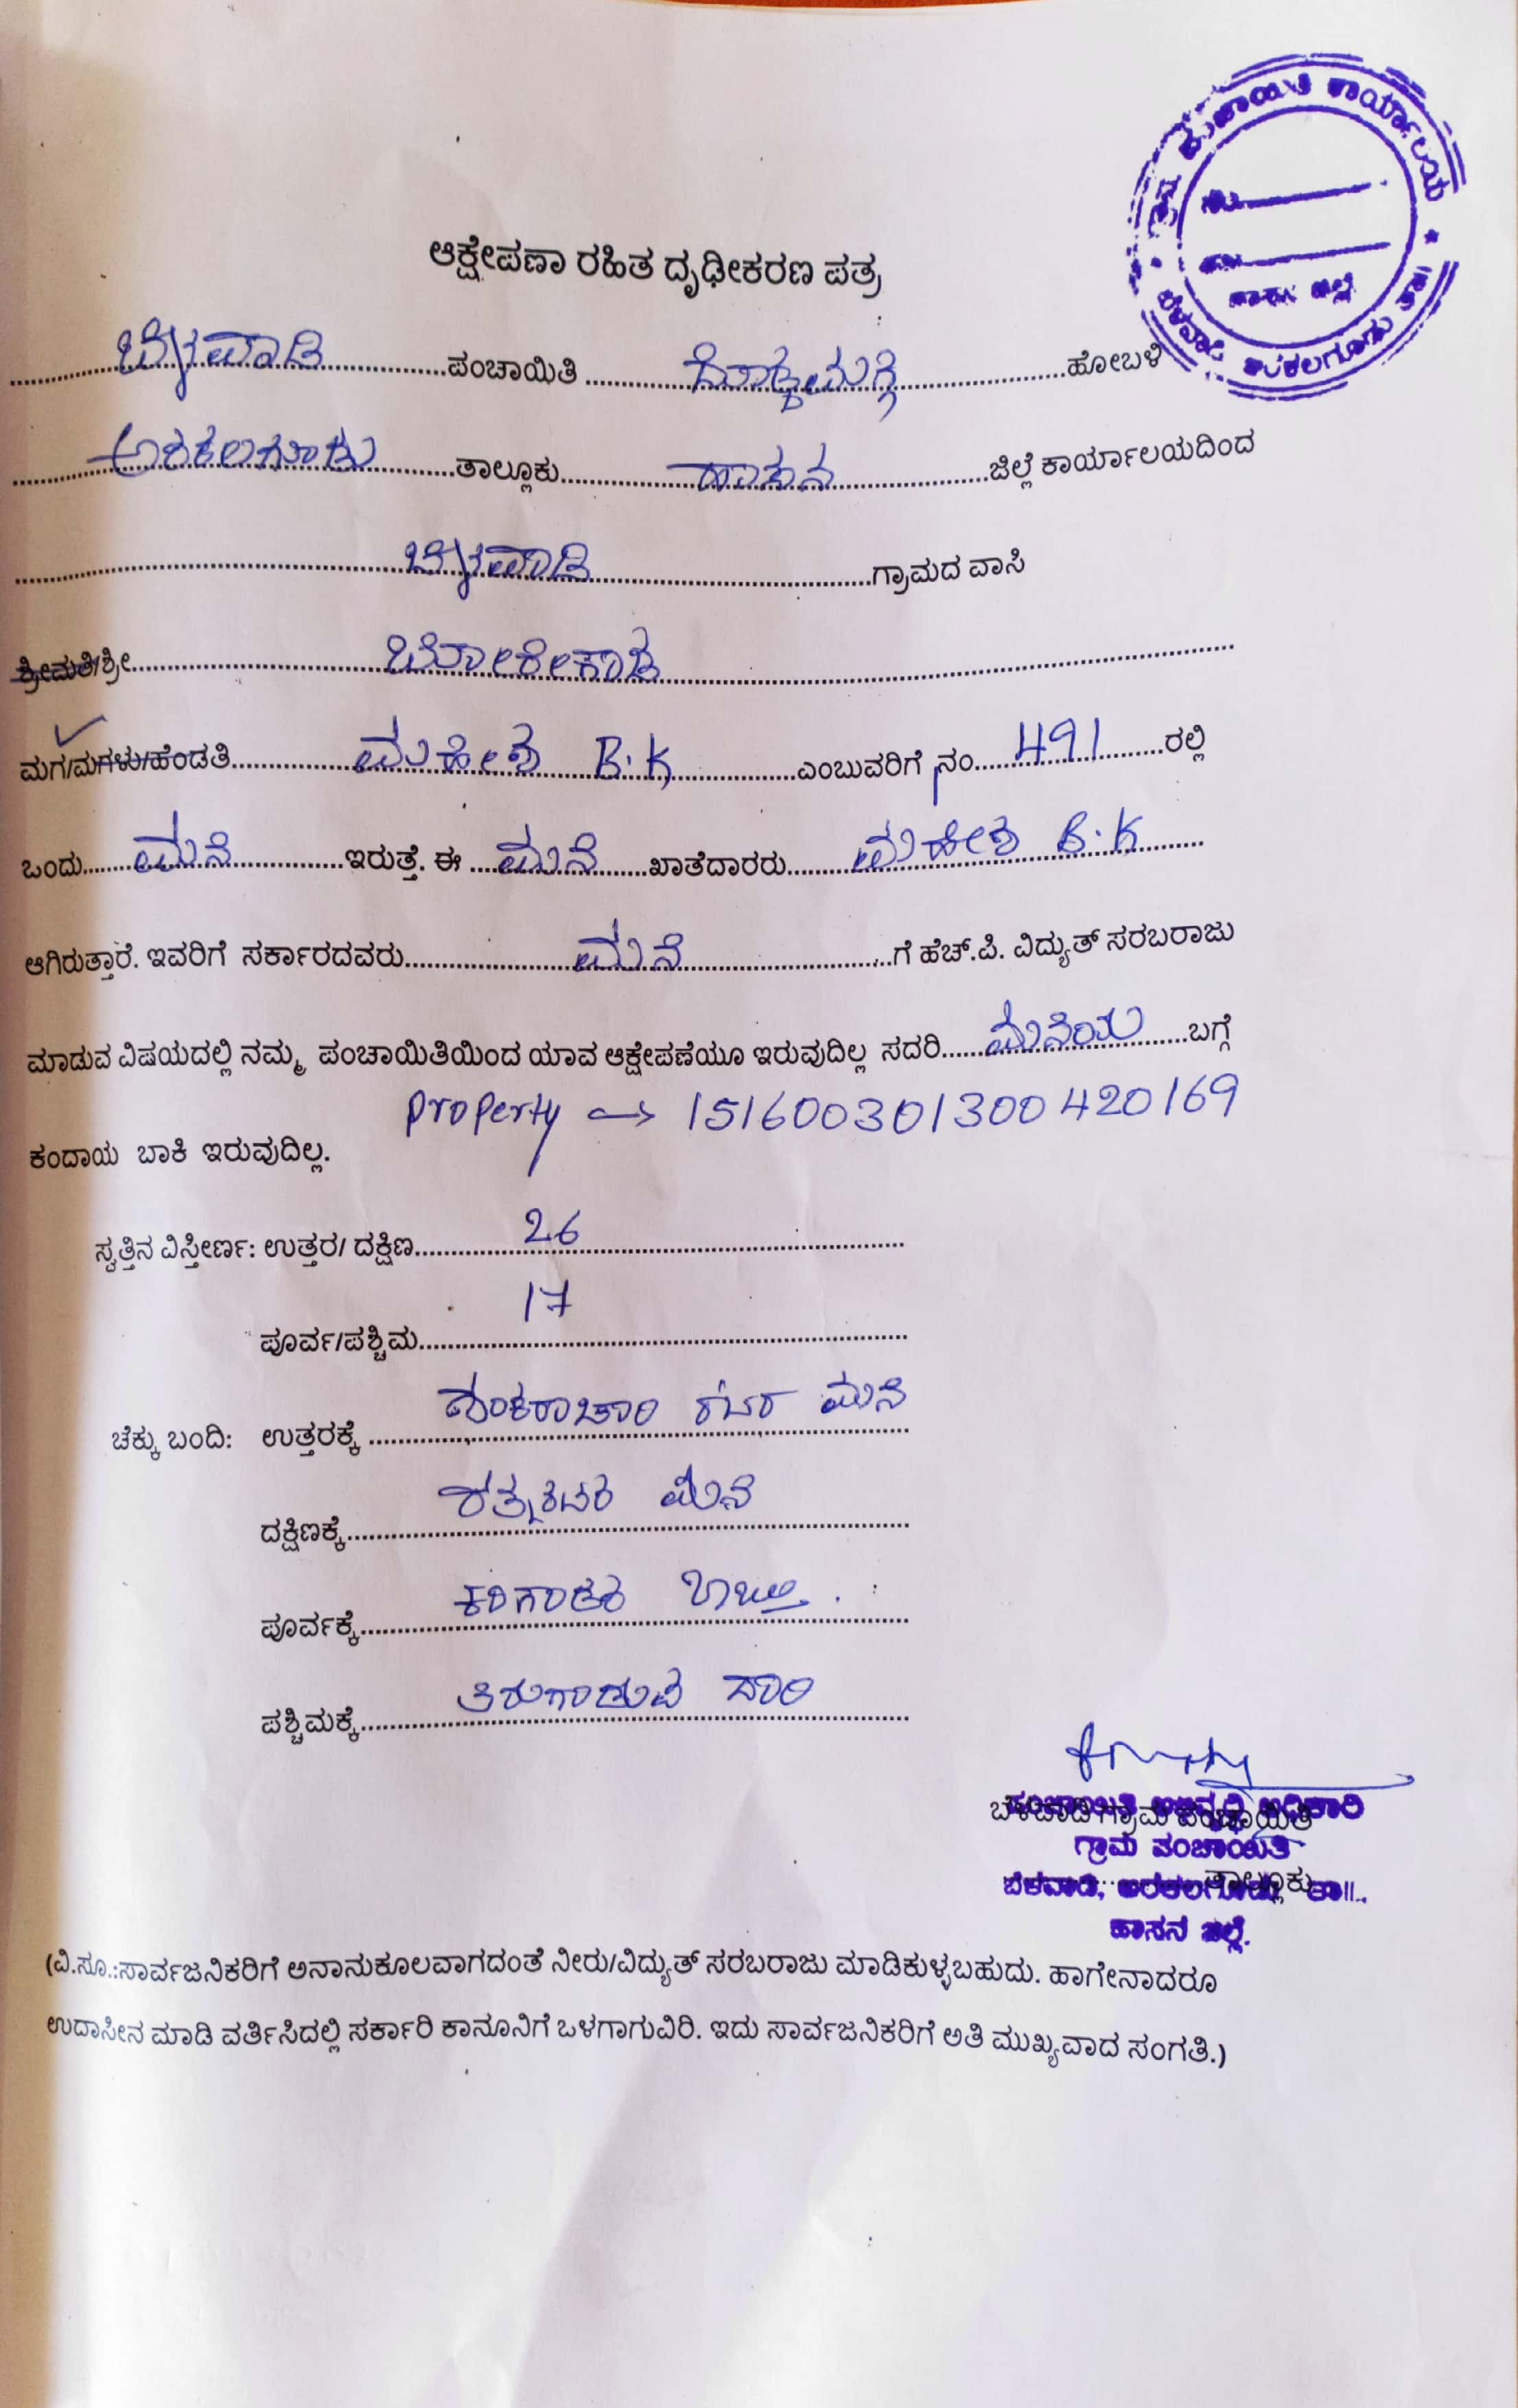 ಪಂಚಾಯಿತಿ ಕಾರ್ಯಾಲಯ
ಹಾಸನ ಜಿಲ್ಲೆ
ಬೆಳವಾಡಿ ಅರಕಲಗೂಡು ತಾ||
ಆಕ್ಷೇಪಣಾ ರಹಿತ ದೃಢೀಕರಣ ಪತ್ರ
ಬೆಳವಾಡಿ ಪಂಚಾಯಿತಿ ದೊಡ್ಡಮಗ್ಗೆ ಹೋಬಳಿ
ಅರಕಲಗೂಡು ತಾಲ್ಲೂಕು ಹಾಸನ ಜಿಲ್ಲೆ ಕಾರ್ಯಾಲಯದಿಂದ
ಬೆಳವಾಡಿ ಗ್ರಾಮದ ವಾಸಿ
ಶ್ರೀಮತಿ/ಶ್ರೀ
ಮಗ/ಮಗಳು/ಹೆಂಡತಿ ಮಹೇಶ B.K ಎಂಬುವರಿಗೆ ನಂ 491 ರಲ್ಲಿ
ಒಂದು ಮನೆ ಇರುತ್ತೆ. ಈ ಮನೆ ಖಾತೆದಾರರು ಮಹೇಶ B.K
ಆಗಿರುತ್ತಾರೆ. ಇವರಿಗೆ ಸರ್ಕಾರದವರು ಮನೆ ಗೆ ಹೆಚ್.ಪಿ. ವಿದ್ಯುತ್ ಸರಬರಾಜು
ಮಾಡುವ ವಿಷಯದಲ್ಲಿ ನಮ್ಮ ಪಂಚಾಯಿತಿಯಿಂದ ಯಾವ ಆಕ್ಷೇಪಣೆಯೂ ಇರುವುದಿಲ್ಲ ಸದರಿ ಮನೆಯ ಬಗ್ಗೆ
Property → 151600301300420169
ಕಂದಾಯ ಬಾಕಿ ಇರುವುದಿಲ್ಲ.
ಸ್ವತ್ತಿನ ವಿಸ್ತೀರ್ಣ: ಉತ್ತರ/ ದಕ್ಷಿಣ 26
ಪೂರ್ವ/ಪಶ್ಚಿಮ 17
ಚೆಕ್ಕು ಬಂದಿ: ಉತ್ತರಕ್ಕೆ ಶಂಕರಾಚಾರಿ ರವರ ಮನೆ
ದಕ್ಷಿಣಕ್ಕೆ ರತ್ನರವರ ಮನೆ
ಪೂರ್ವಕ್ಕೆ
ಪಶ್ಚಿಮಕ್ಕೆ ತಿರುಗಾಡುವ ದಾರಿ
ಬೆಳವಾಡಿ ಗ್ರಾಮ ಪಂಚಾಯಿತಿ
ಪಂಚಾಯಿತಿ ಅಭಿವೃದ್ಧಿ ಅಧಿಕಾರಿ
ಗ್ರಾಮ ಪಂಚಾಯಿತಿ
ತಾಲ್ಲೂಕು
ಬೆಳವಾಡಿ, ಅರಕಲಗೂಡು ತಾ||.
ಹಾಸನ ಜಿಲ್ಲೆ.
(ವಿ.ಸೂ.:ಸಾರ್ವಜನಿಕರಿಗೆ ಅನಾನುಕೂಲವಾಗದಂತೆ ನೀರು/ವಿದ್ಯುತ್ ಸರಬರಾಜು ಮಾಡಿಕುಳ್ಳಬಹುದು. ಹಾಗೇನಾದರೂ
ಉದಾಸೀನ ಮಾಡಿ ವರ್ತಿಸಿದಲ್ಲಿ ಸರ್ಕಾರಿ ಕಾನೂನಿಗೆ ಒಳಗಾಗುವಿರಿ. ಇದು ಸಾರ್ವಜನಿಕರಿಗೆ ಅತಿ ಮುಖ್ಯವಾದ ಸಂಗತಿ.)